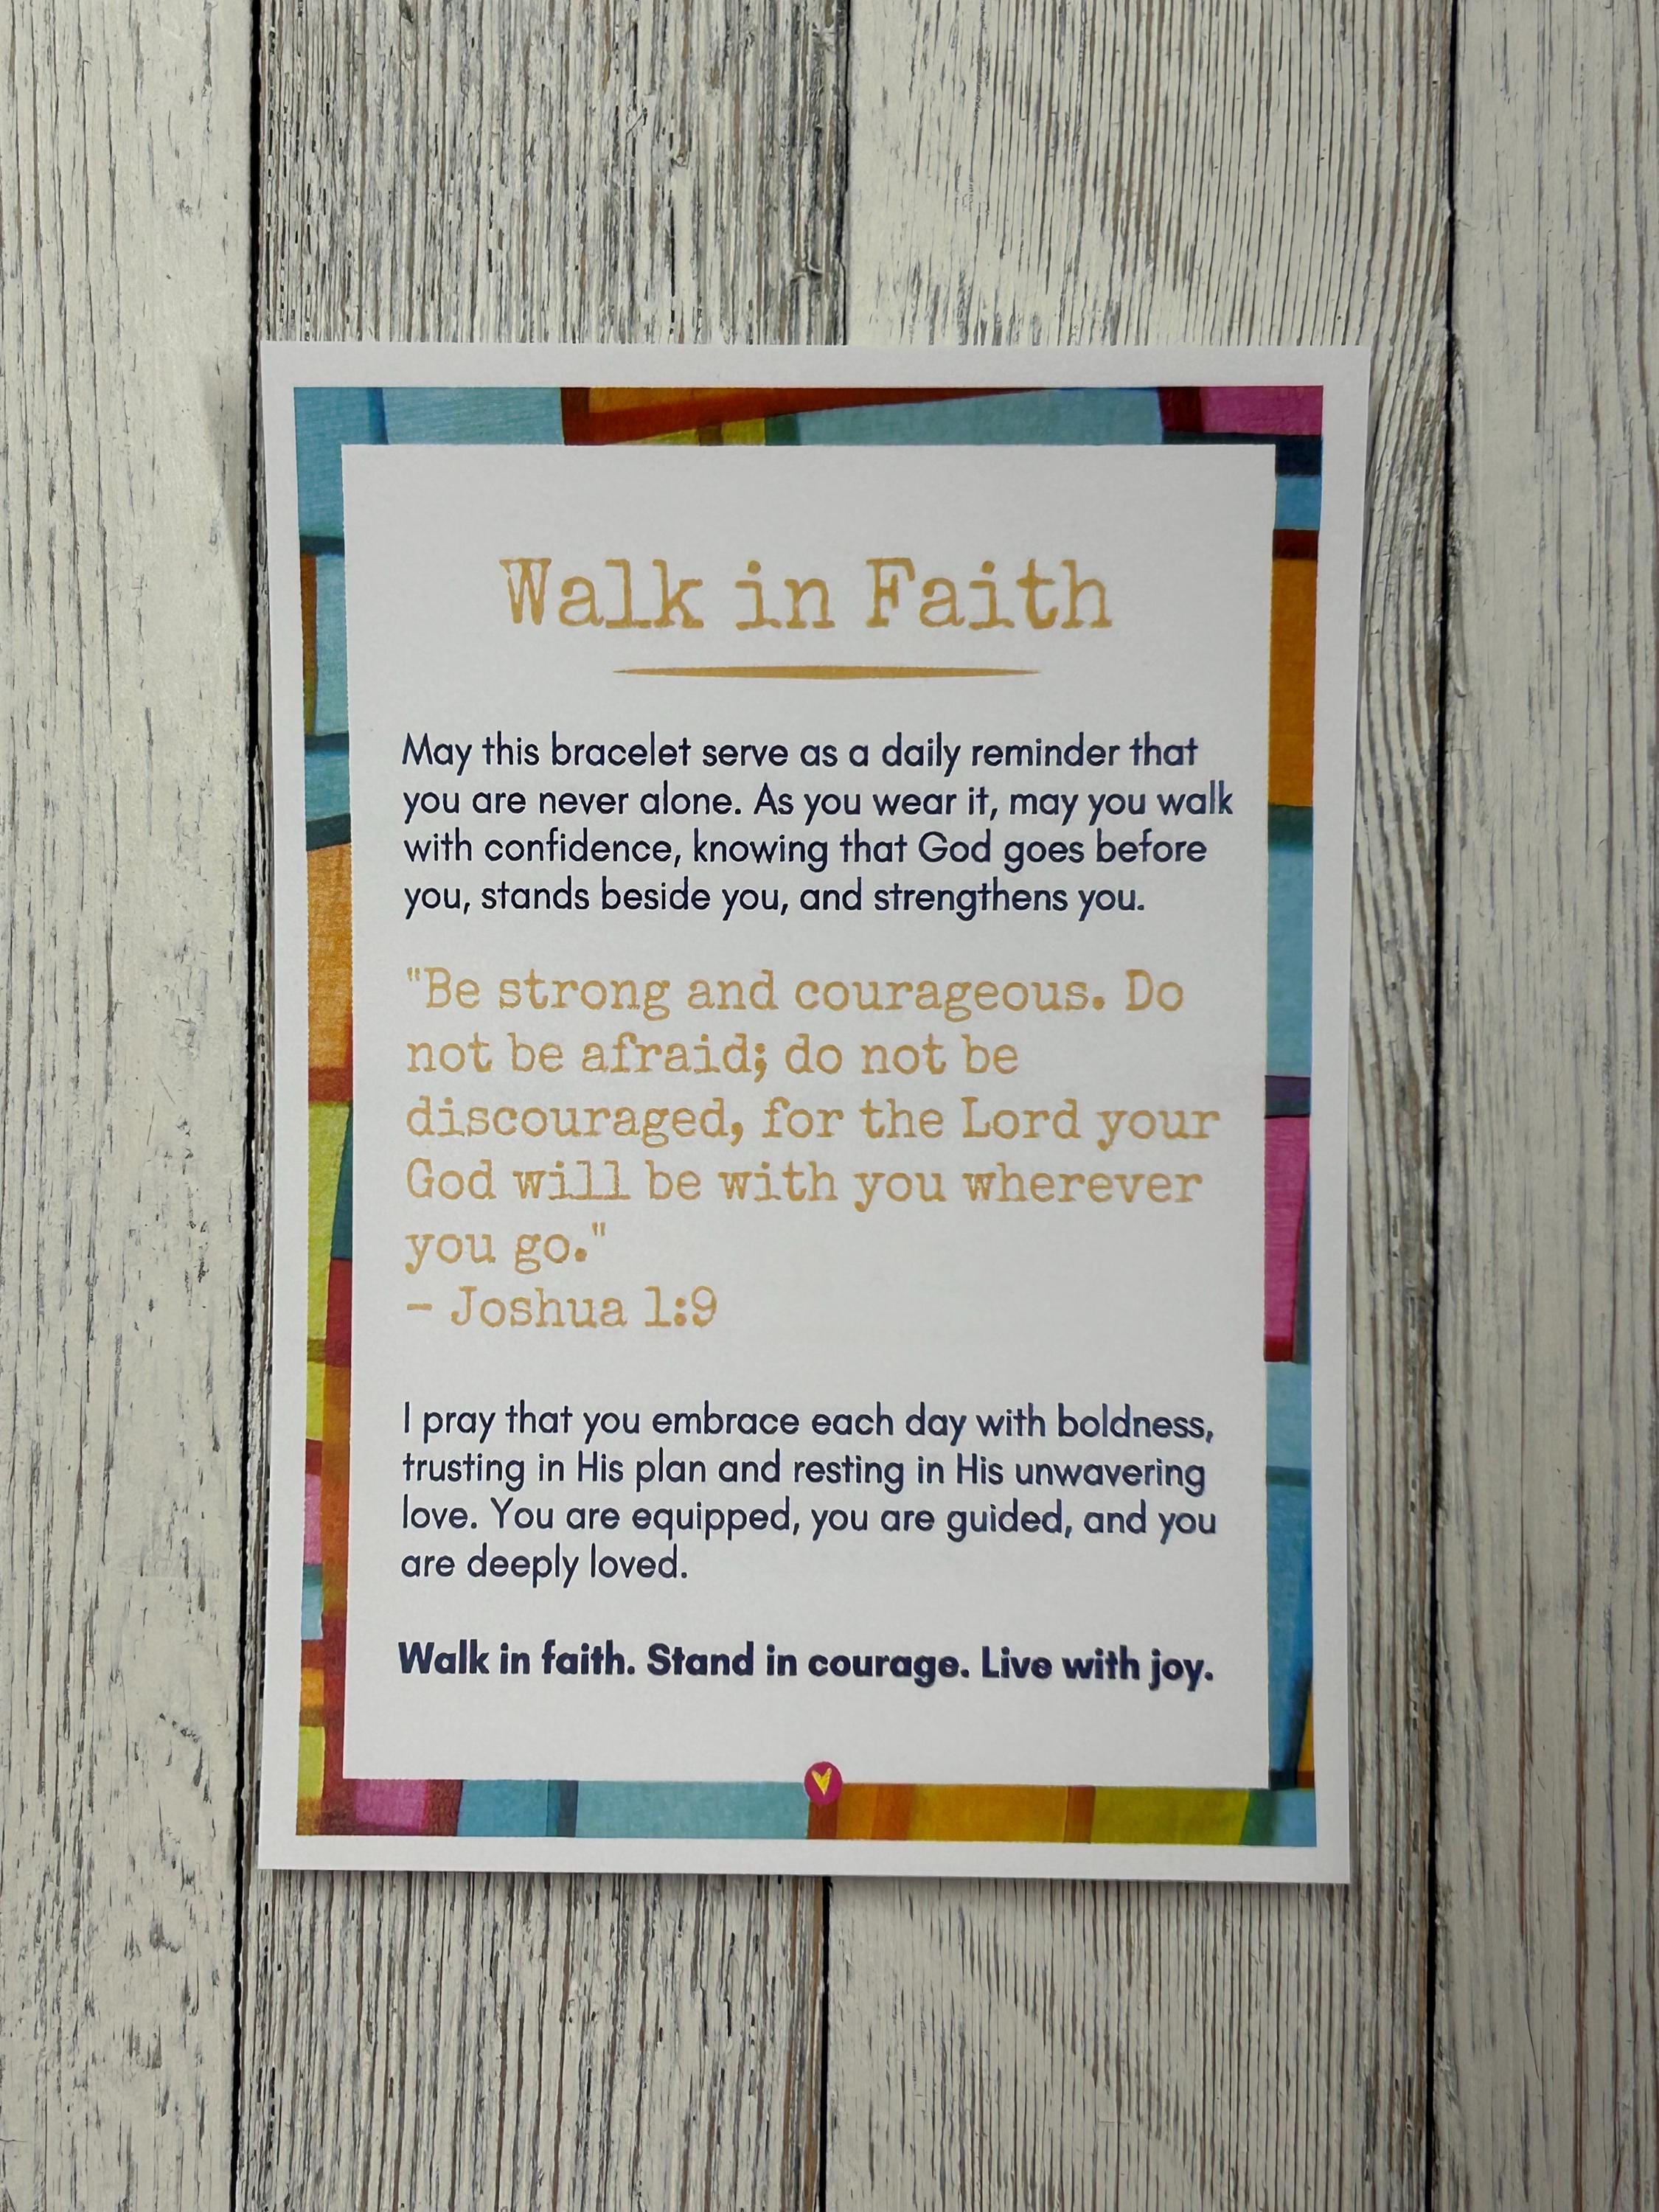 Walk in Faith
May this bracelet serve as a daily reminder that
you are never alone. As you wear it, may you walk
with confidence, knowing that God goes before
you, stands beside you, and strengthens you.
"Be strong and courageous. Do
not be afraid; do not be
discouraged, for the Lord your
God will be with you wherever
you go."
- Joshua 1:9
I pray that you embrace each day with boldness,
trusting in His plan and resting in His unwavering
love. You are equipped, you are guided, and you
are deeply loved.
Walk in faith. Stand in courage. Live with joy.